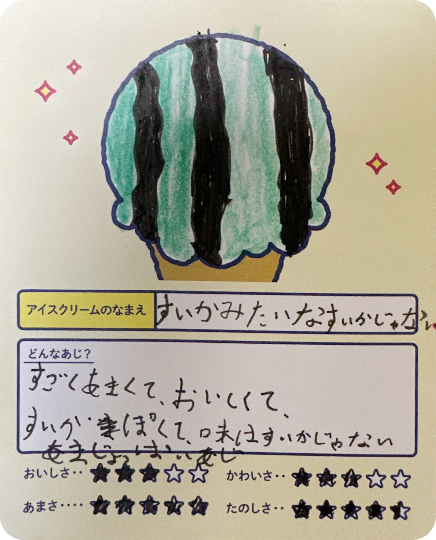 アイスクリームのなまえ すいかみたいなすいかじゃない
どんなあじ?
すごくあまくて、おいしくて、
すいかっぽくて、味はすいかじゃない
あまじょっぱいあじ
おいしさ‥ ★★★☆☆
かわいさ‥ ★★★☆☆
あまさ‥‥ ★★★★★
たのしさ‥